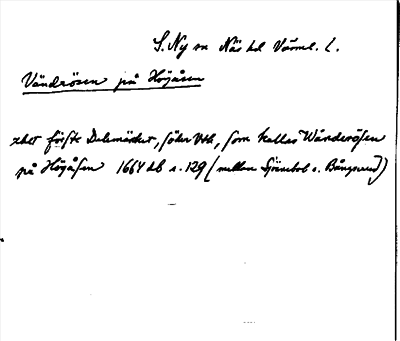 S. Ny sn Näs hd Värml. l.
Vändrösen på Höjåsen
thet förste Delemärket, söder uth, som kallas Wänderösen
på Höyåsen 1664 db s. 129 (mellan o.